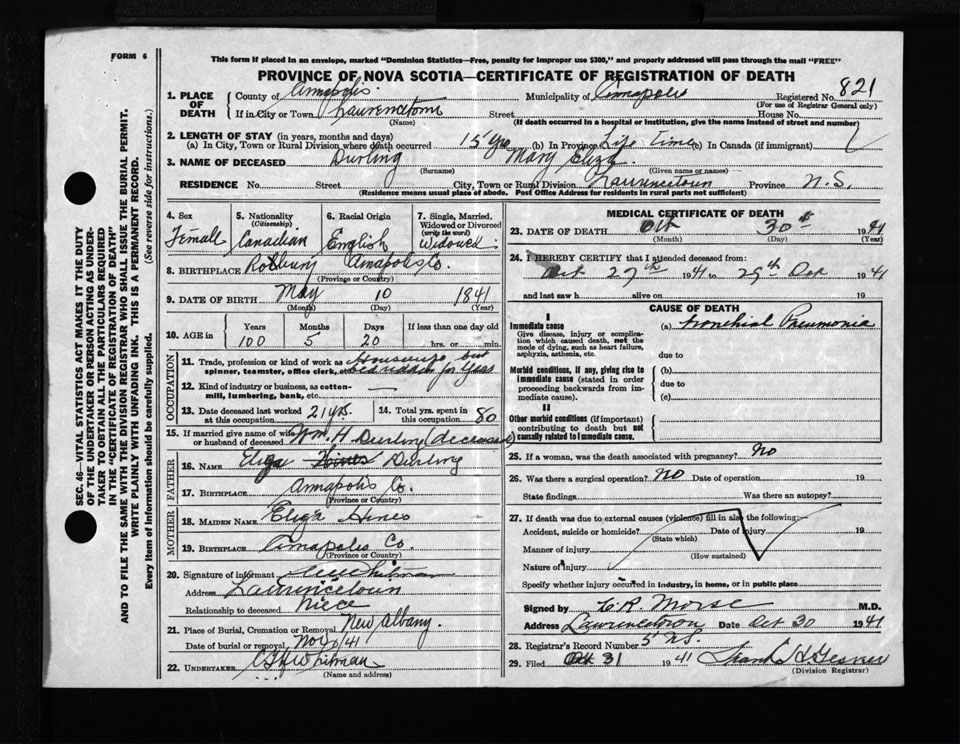 FORM 6
This form if placed in an envelope, marked "Dominion Statistics—Free, penalty for improper use $300," and properly addressed will pass through the mail "FREE"
PROVINCE OF NOVA SCOTIA—CERTIFICATE OF REGISTRATION OF DEATH
SEC. 46—VITAL STATISTICS ACT MAKES IT THE DUTY
OF THE UNDERTAKER OR PERSON ACTING AS UNDER-
TAKER TO OBTAIN ALL THE PARTICULARS REQUIRED
IN THE "CERTIFICATE OF REGISTRATION OF DEATH"
AND TO FILE THE SAME WITH THE DIVISION REGISTRAR WHO SHALL ISSUE THE BURIAL PERMIT.
WRITE PLAINLY WITH UNFADING INK. THIS IS A PERMANENT RECORD.
Every item of information should be carefully supplied. (See reverse side for instructions.)
1. PLACE OF DEATH
County of Annapolis Municipality of Annapolis Registered No. 821
(For use of Registrar General only)
If in City or Town Lawrencetown Street House No.
(Name) (If death occurred in a hospital or institution, give the name instead of street and number)
2. LENGTH OF STAY (in years, months and days)
(a) In City, Town or Rural Division where death occurred 15 yrs (b) In Province Life Time (c) In Canada (if immigrant)
3. NAME OF DECEASED Durling Mary Eliza
(Surname) (Given name or names)
RESIDENCE No. Street City, Town or Rural Division Lawrencetown Province N.S.
(Residence means usual place of abode. Post Office Address for residents in rural parts not sufficient)
4. Sex 5. Nationality 6. Racial Origin 7. Single, Married,
(Citizenship) Widowed or Divorced
(write the word)
Female Canadian English Widowed
8. BIRTHPLACE Roxbury Annapolis Co.
(Province or Country)
9. DATE OF BIRTH May 10 1841
(Month) (Day) (Year)
10. AGE in Years Months Days If less than one day old
100 5 20 hrs. or min.
OCCUPATION
11. Trade, profession or kind of work as Housewife but
spinner, teamster, office clerk, etc. bedridden for years
12. Kind of industry or business, as cotton-
mill, lumbering, bank, etc. —
13. Date deceased last worked at this occupation 21 yrs. 14. Total yrs. spent in this occupation 80
15. If married give name of wife
or husband of deceased Wm. H Durling (deceased)
FATHER
16. NAME Eliga Hines Durling
17. BIRTHPLACE Annapolis Co.
(Province or Country)
MOTHER
18. MAIDEN NAME Eliza Hines
19. BIRTHPLACE Annapolis Co.
(Province or Country)
20. Signature of informant Whitman
Address Lawrencetown
Relationship to deceased Niece
21. Place of Burial, Cremation or Removal New Albany.
Date of burial or removal Nov 1/41
22. UNDERTAKER Whitman
(Name and address)
MEDICAL CERTIFICATE OF DEATH
23. DATE OF DEATH Oct 30th 1941
(Month) (Day) (Year)
24. I HEREBY CERTIFY that I attended deceased from:
Oct 27th 1941 to 29th Oct 1941
and last saw h alive on 19
CAUSE OF DEATH
I
Immediate cause (a) Bronchial Pneumonia
Give disease, injury or complica-
tion which caused death, not the
mode of dying, such as heart failure,
asphyxia, asthenia, etc. due to
Morbid conditions, if any, giving rise to (b)
immediate cause (stated in order due to
proceeding backwards from im-
mediate cause). (c)
II
Other morbid conditions (if important)
contributing to death but not
causally related to immediate cause.
25. If a woman, was the death associated with pregnancy? No
26. Was there a surgical operation? No Date of operation 19
State findings Was there an autopsy?
27. If death was due to external causes (violence) fill in also the following:—
Accident, suicide or homicide? Date of injury 19
(State which)
Manner of injury
(How sustained)
Nature of injury
Specify whether injury occurred in industry, in home, or in public place
Signed by Morse M.D.
Address Lawrencetown Date Oct 30 1941
28. Registrar's Record Number 5 N.S.
29. Filed Oct 31 1941 Frank H Gesner
(Division Registrar)